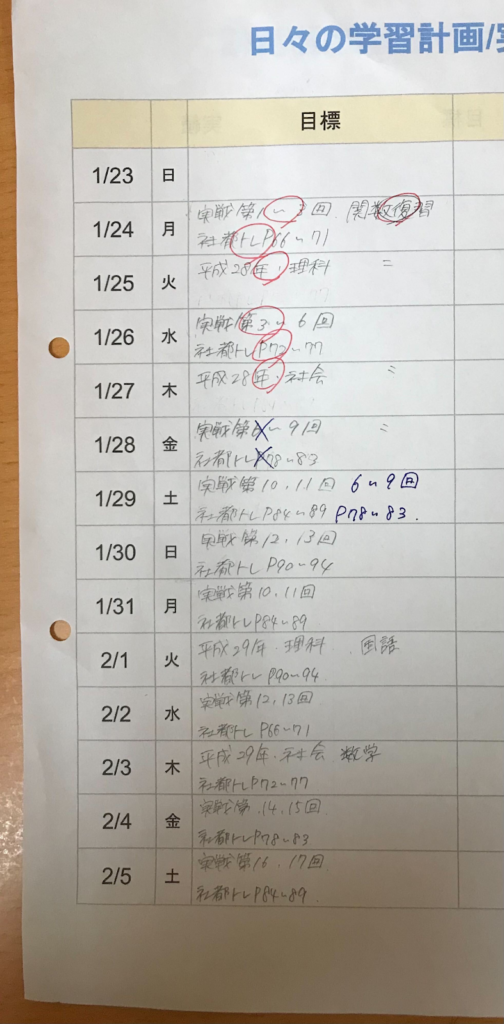 日々の学習計画/実
目標
1/23 日
1/24 月 実戦第1~3回 関数復習
社都トレP66~71
1/25 火 平成28年・理科 〃
1/26 水 実戦第3~6回
社都トレP72~77
1/27 木 平成28年・社会 〃
1/28 金 実戦第6~9回 〃
社都トレP78~83
1/29 土 実戦第10,11回 6~9回
社都トレP84~89 P78~83.
1/30 日 実戦第12,13回
社都トレP90~94
1/31 月 実戦第10,11回
社都トレP84~89
2/1 火 平成29年・理科 国語
社都トレP90~94
2/2 水 実戦第12,13回
社都トレP66~71
2/3 木 平成29年・社会 数学
社都トレP72~77
2/4 金 実戦第14,15回
社都トレP78~83
2/5 土 実戦第16,17回
社都トレP84~89